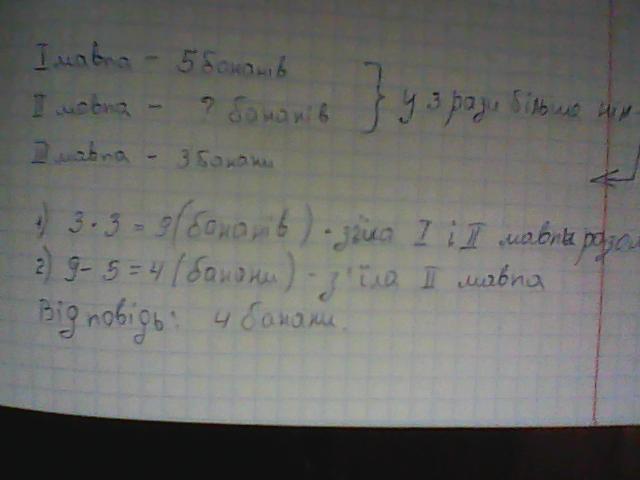 I мавпа - 5 бананів
II мавпа - ? бананів } у 3 рази більше ніж
III мавпа - 3 банани
1) 3 · 3 = 9 (бананів) - з'їла I і II мавпы разом
2) 9 - 5 = 4 (банани) - з'їла II мавпа
Відповідь: 4 банани.